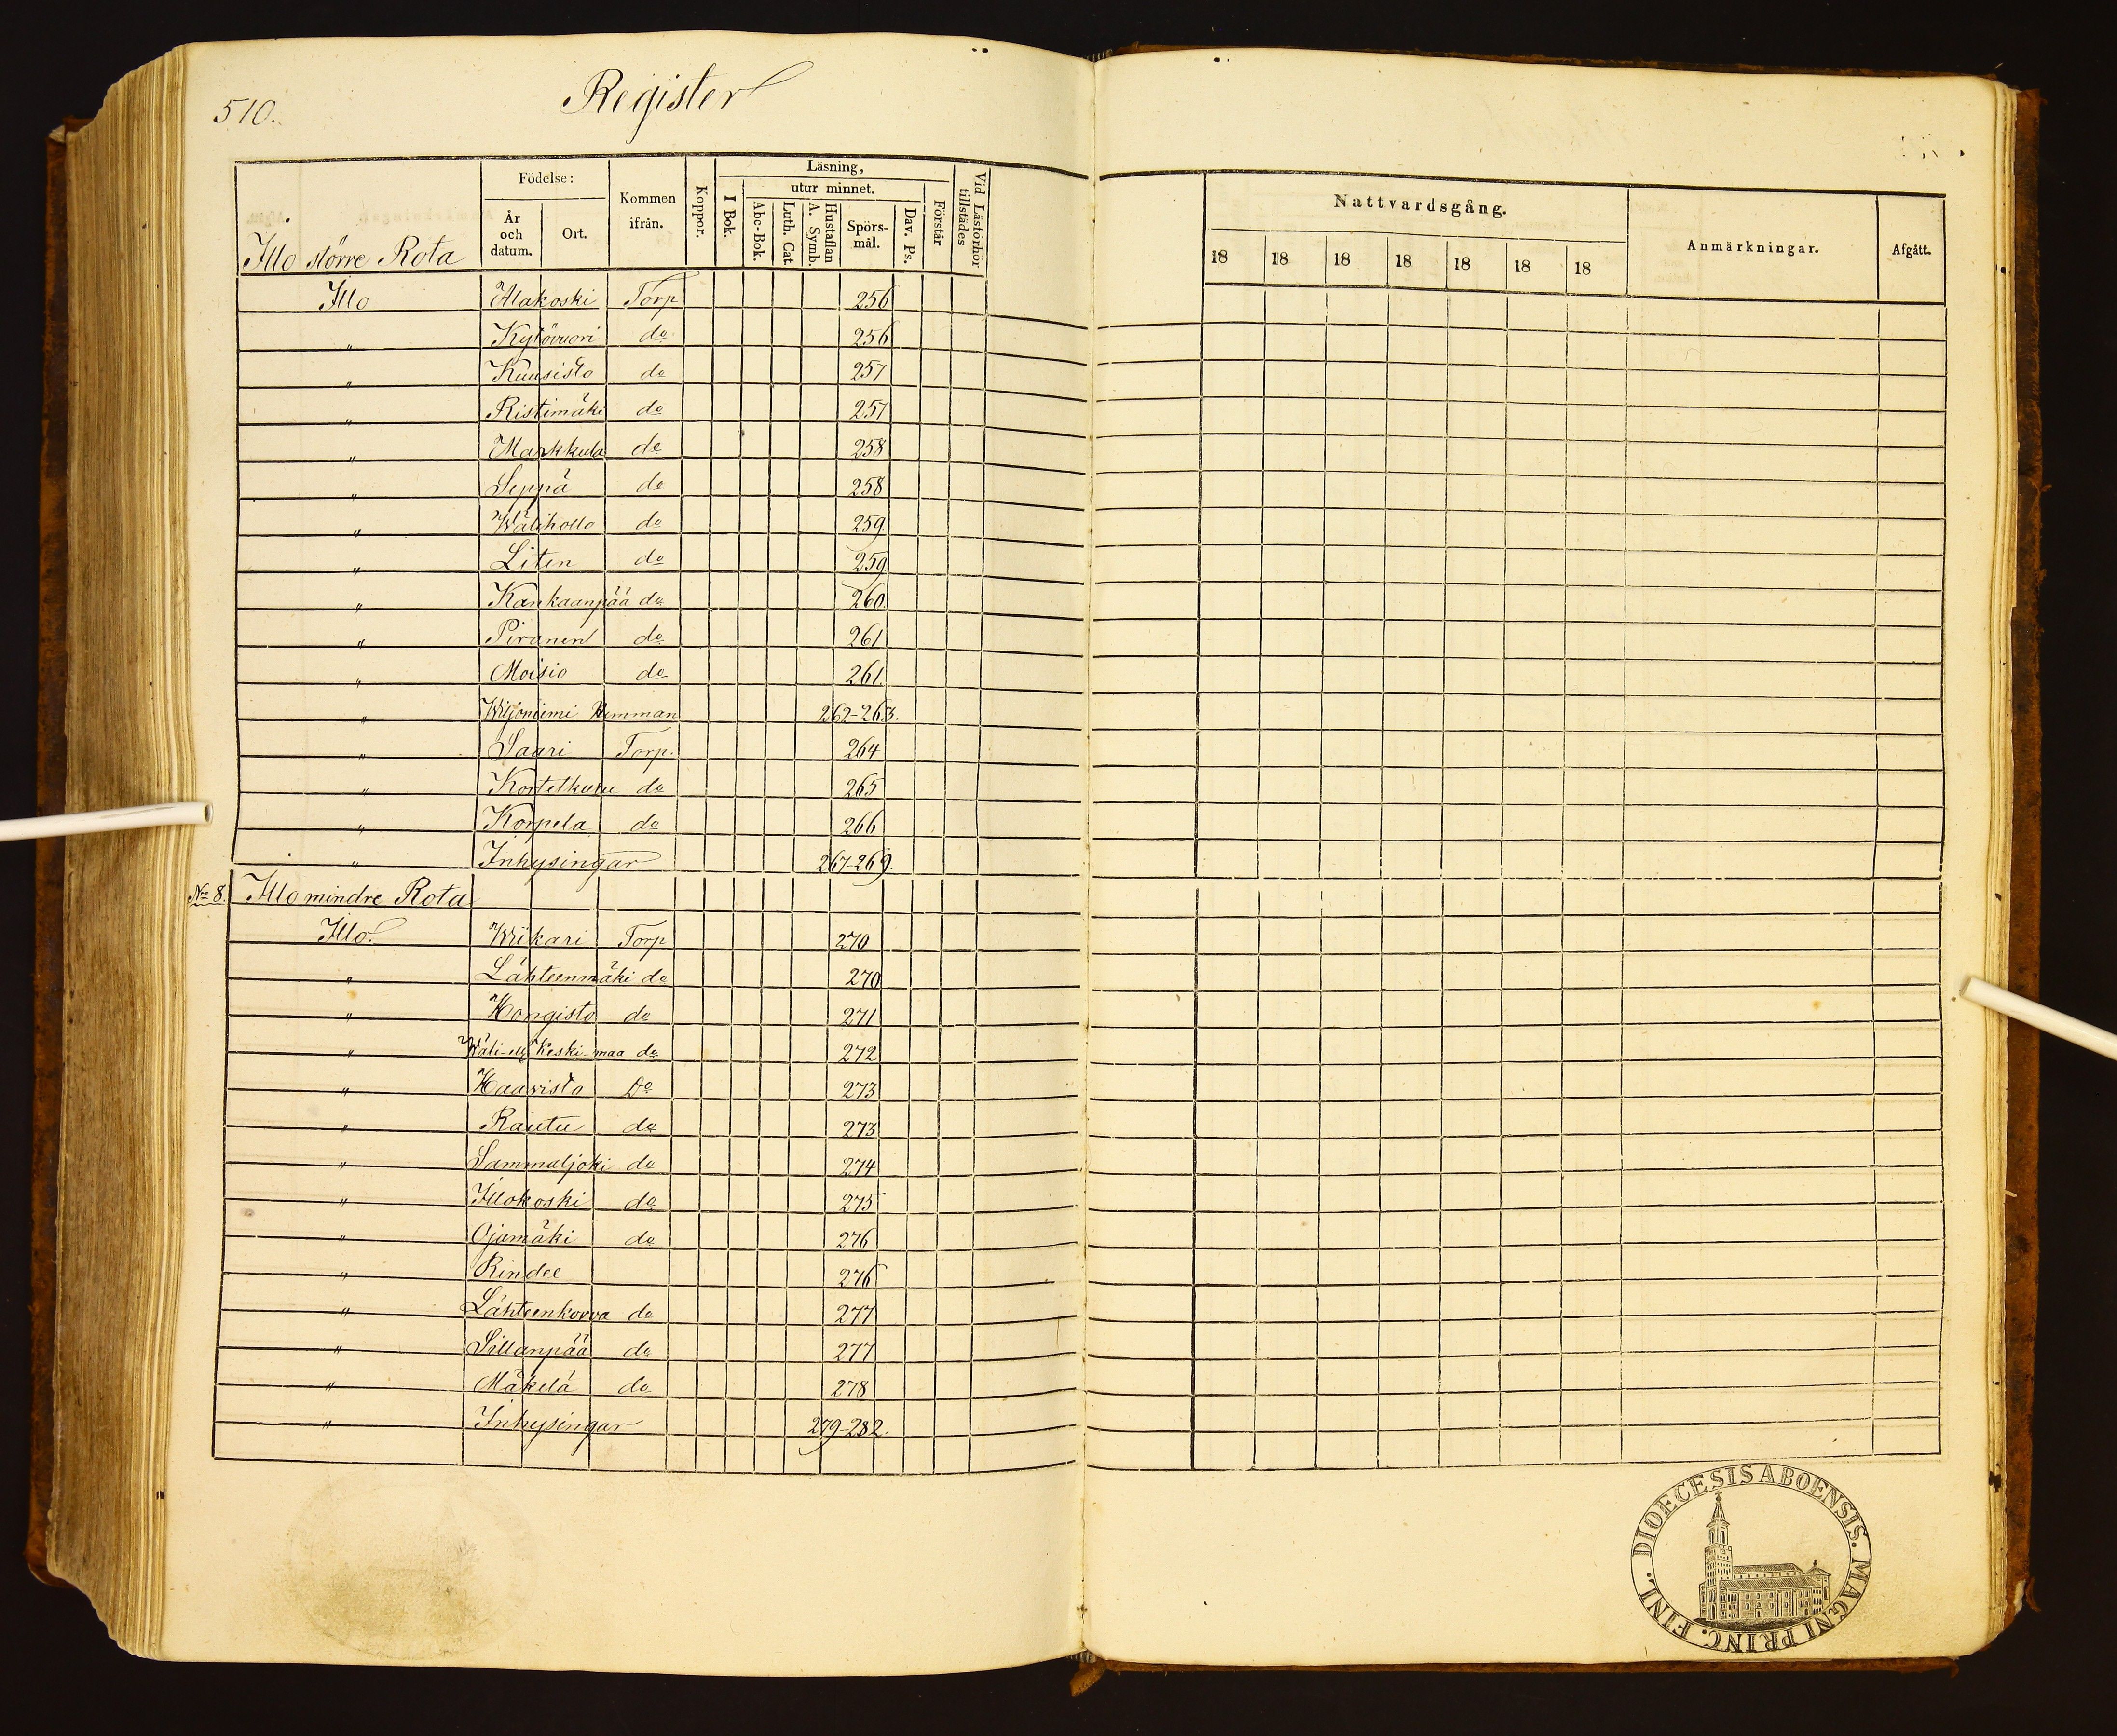 510.
Register
Läsning,
Födelse:
utur minnet.
Kommen ifrån.
Koppor.
I Bok.
Abc-Bok.
Luth. Cat.
Hustaflan A. Symb.
Spörs-mål.
Dav. Ps.
Förstår
Vid Läsförhör tillstädes
År och datum.
Ort.
Nattvardsgång.
Anmärkningar.
Afgått.
18 18 18 18 18 18 18
Illo större Rota
Illo Alakoski Torp 256
" Kytövuori do 256
" Kuusisto do 257
" Ristimäki do 257
" Markkula do 258
" Seppä do 258
" Wälihollo do 259.
" Liten do 259.
" Kankaanpää do 260.
" Piranen do 261
" Moisio do 261.
" Wiljoniemi Hemman 262-263.
" Saari Torp. 264
" Kortetkuru do 265
" Korpela do 266
" Inhysingar 267-269.
No 8. Illo mindre Rota
Illo. Wiikari Torp 270
" Lähteenmäki do 270
" Hongisto do 271
" Wäli- ell. Keski-maa do 272
" Haavisto Do 273
" Rautu do 273
" Sammaljoki do 274
" Illokoski do 275
" Ojamäki do 276
" Rindee 276
" Lähteenkorva do 277
" Sillanpää do 277
" Mäkelä do 278
" Inhysingar 279-282.
DIOECESIS ABOENSIS. MAGNI PRINC. FINL.